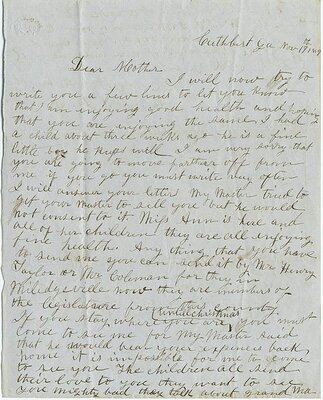 Cuthbert Ga Nov 19th
Dear Mother
I will now try to
write you a few lines to let you know
that I am enjoying good health and hoping
that you are enjoying the same I had
a child about three weeks ago he is a fine
little boy he well I am very sorry that
you are going to move farther off from
me if you go you must write very often
I will answer your letter My Master tried to
get your Master to sell you but he would
not consent to it Miss Ann is here and
all of her children they are all enjoying
fine health. Any thing that you have
to send me you can send it by Mr Henry
Taylor or Mr Coleman for they in
Milledgeville now they are members of
the legislature from this county
until christmas
If you stay where you are you must
come to see me for My Master said
that he would bear your expense back
home it is impossible for me to come
to see you The children all send
their love to you they want to see
you mighty bad they talk about grand Ma